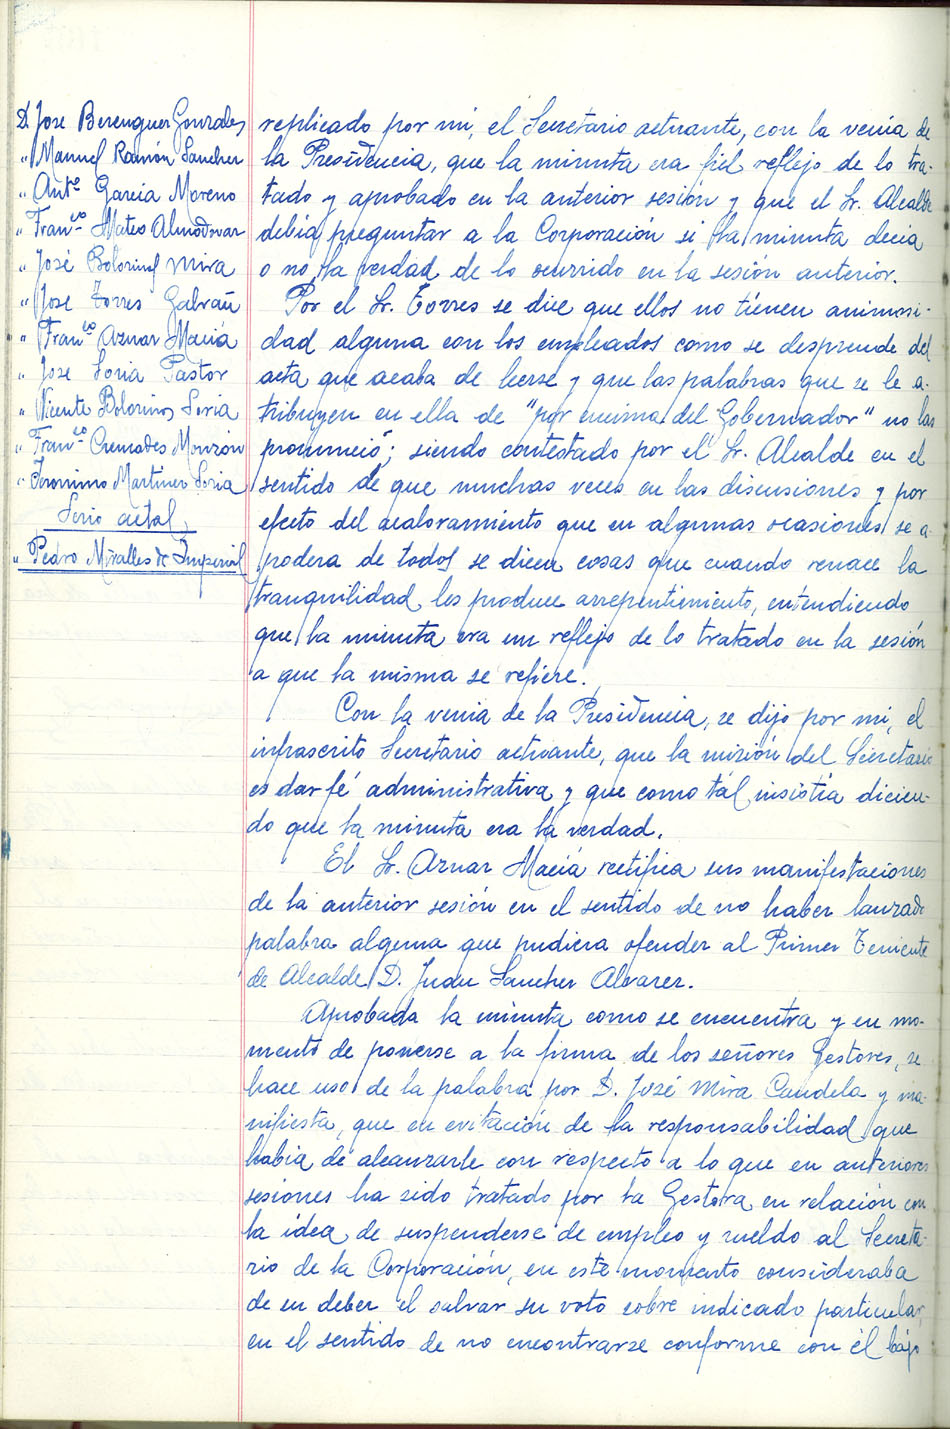 D. Jose Berenguer Gonzales
" Manuel Ramón Sancher
" Antº Garcia Moreno
" Franco Mateo Almodovar
" José Bolorinos Mira
" Jose Torres Galvañ
" Franco Aznar Maciá
" Jose Soria Pastor
" Vicente Bolorinos Soria
" Franco Cremades Monzón
" Jeronimo Martinez Soria
Serio actal,
" Pedro Miralles de Imperial
replicado por mi, el Secretario actuante, con la venia de
la Presidencia, que la minuta era fiel reflejo de lo tra-
tado y aprobado en la anterior sesión y que el Sr. Alcalde
debia preguntar a la Corporación si la minuta decia
o no la verdad de lo ocurrido en la sesión anterior.
Por el Sr. Torres se dice que ellos no tienen animosi-
dad alguna con los empleados como se desprende del
acta que acaba de leerse y que las palabras que se le a-
tribuyen en ella de "por encima del Gobernador" no las
pronunció; siendo contestado por el Sr. Alcalde en el
sentido de que muchas veces en las discusiones y por
efecto del acaloramiento que en algunas ocasiones se a-
podera de todos se dicen cosas que cuando renace la
tranquilidad les produce arrepentimiento, entendiendo
que la minuta era un reflejo de lo tratado en la sesión
a que la misma se refiere.
Con la venia de la Presidencia, se dijo por mi, el
infrascrito Secretario actuante, que la misión del Secretario
es dar fé administrativa y que como tál insistia dicien-
do que la minuta era la verdad.
El Sr. Aznar Maciá rectifica sus manifestaciones
de la anterior sesión en el sentido de no haber lanzado
palabra alguna que pudiera ofender al Primer Teniente
de Alcalde D. Juan Sancher Alvarez.
Aprobada la minuta como se encuentra y en mo-
mento de ponerse a la firma de los señores Gestores, se
hace uso de la palabra por D. José Mira Candela y ma-
nifiesta, que en evitación de la responsabilidad que
habia de alcanzarle con respecto a lo que en anteriores
sesiones ha sido tratado por la Gestora en relación con
la idea de suspenderse de empleo y sueldo al Secreta-
rio de la Corporación, en este momento consideraba
de su deber el salvar su voto sobre indicado particular,
en el sentido de no encontrarse conforme con él bajo